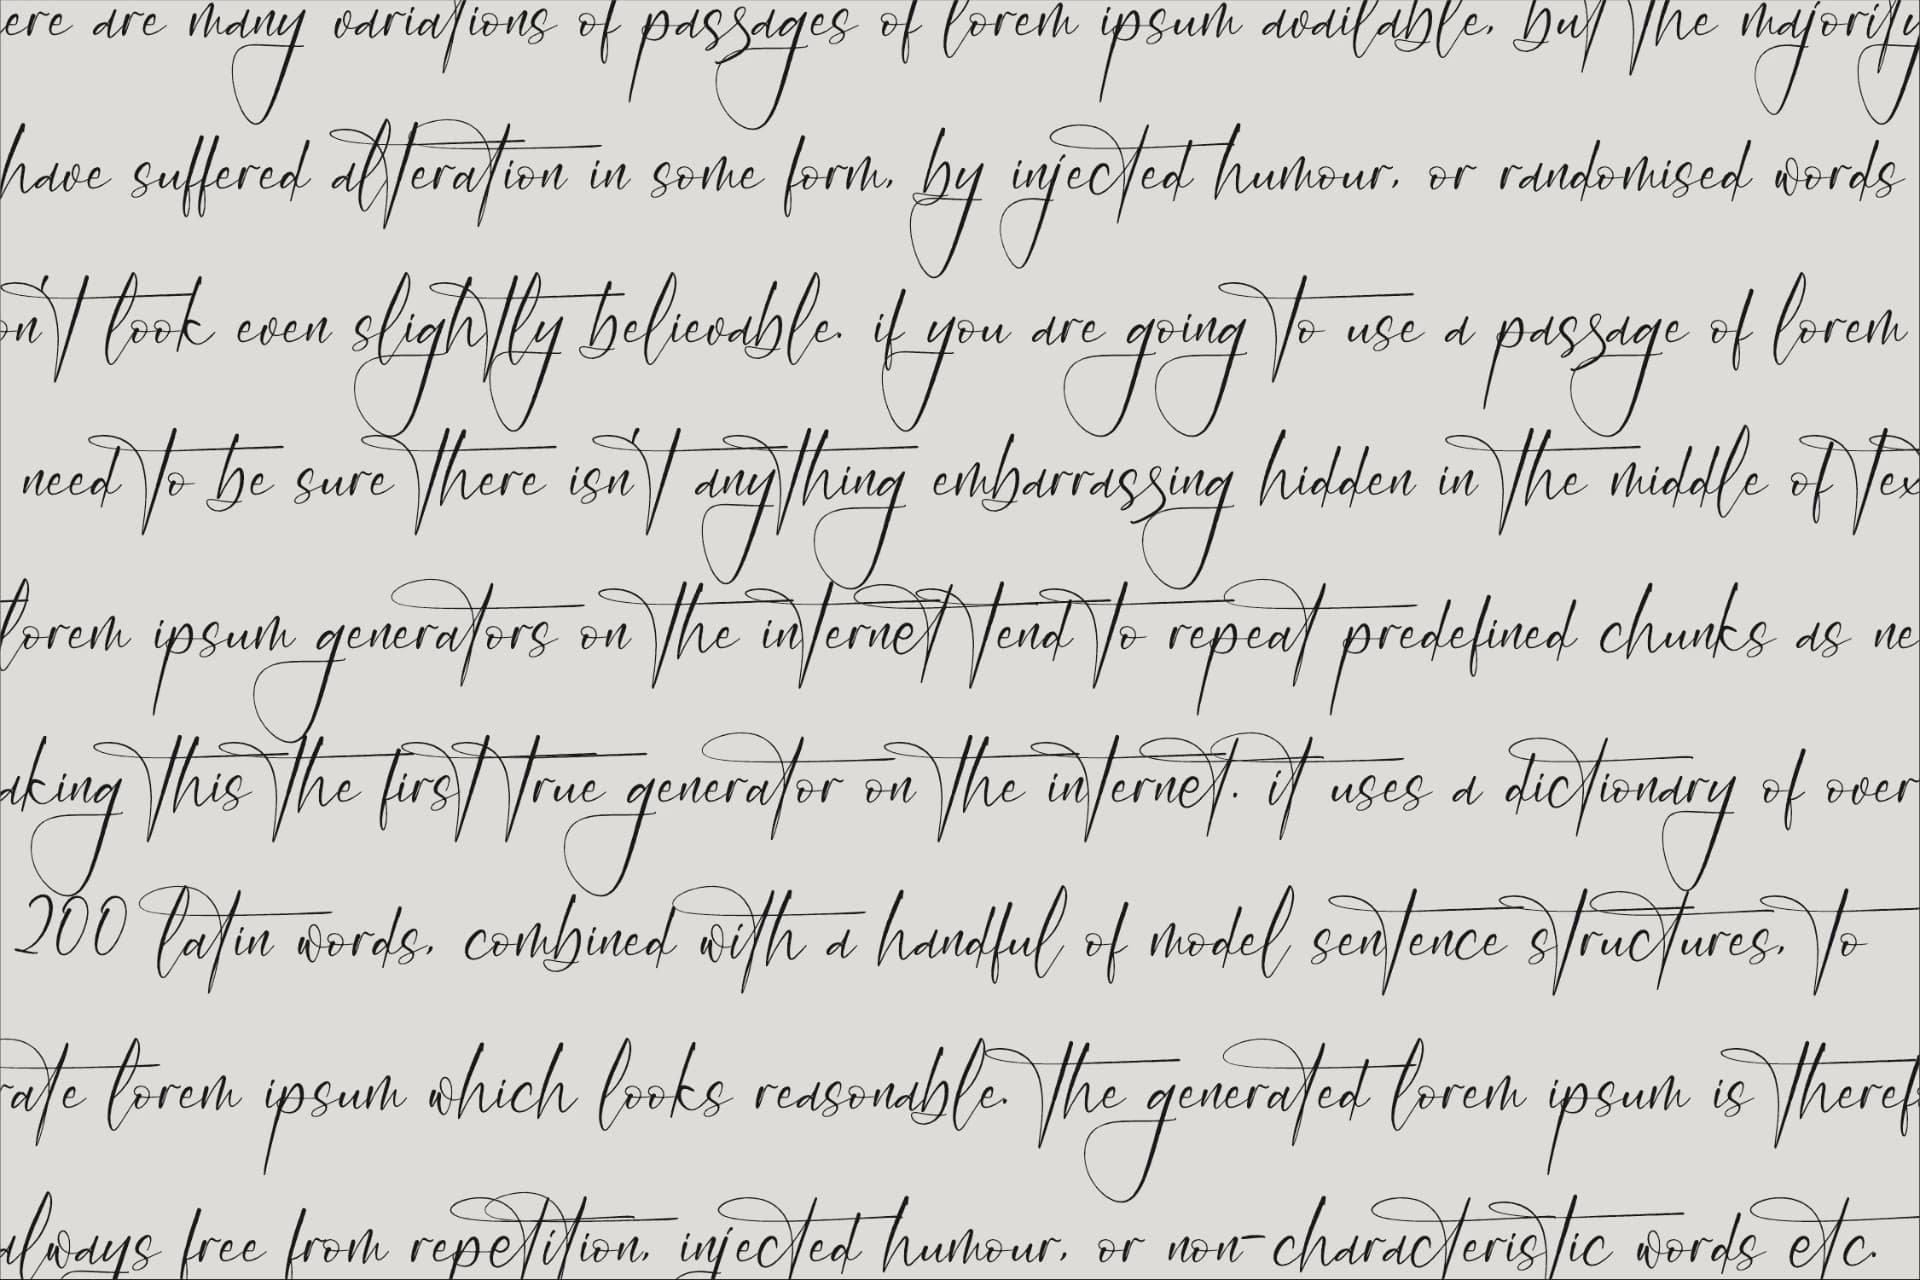 ere are many variations of passages of lorem ipsum available, but the majority
have suffered alteration in some form, by injected humour, or randomised words
on't look even slightly believable. if you are going to use a passage of lorem
need to be sure there isn't anything embarrassing hidden in the middle of tex
lorem ipsum generators on the internet tend to repeat predefined chunks as ne
aking this the first true generator on the internet. it uses a dictionary of over
200 latin words, combined with a handful of model sentence structures, to
rate lorem ipsum which looks reasonable. the generated lorem ipsum is theref
always free from repetition, injected humour, or non-characteristic words etc.